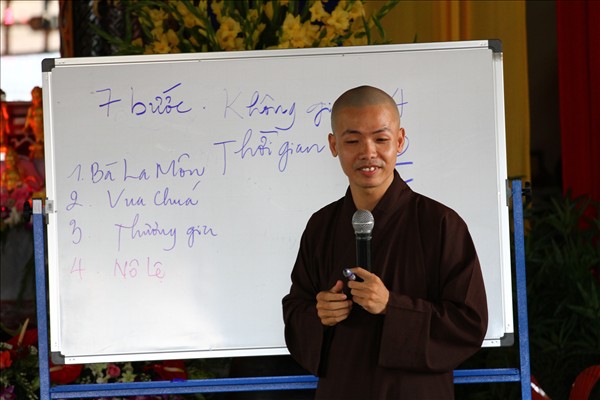 7 bước. Không gian 4
Thời gian
1. Bà La Môn
2. Vua chuá
3 Thương gia
4. Nô Lệ